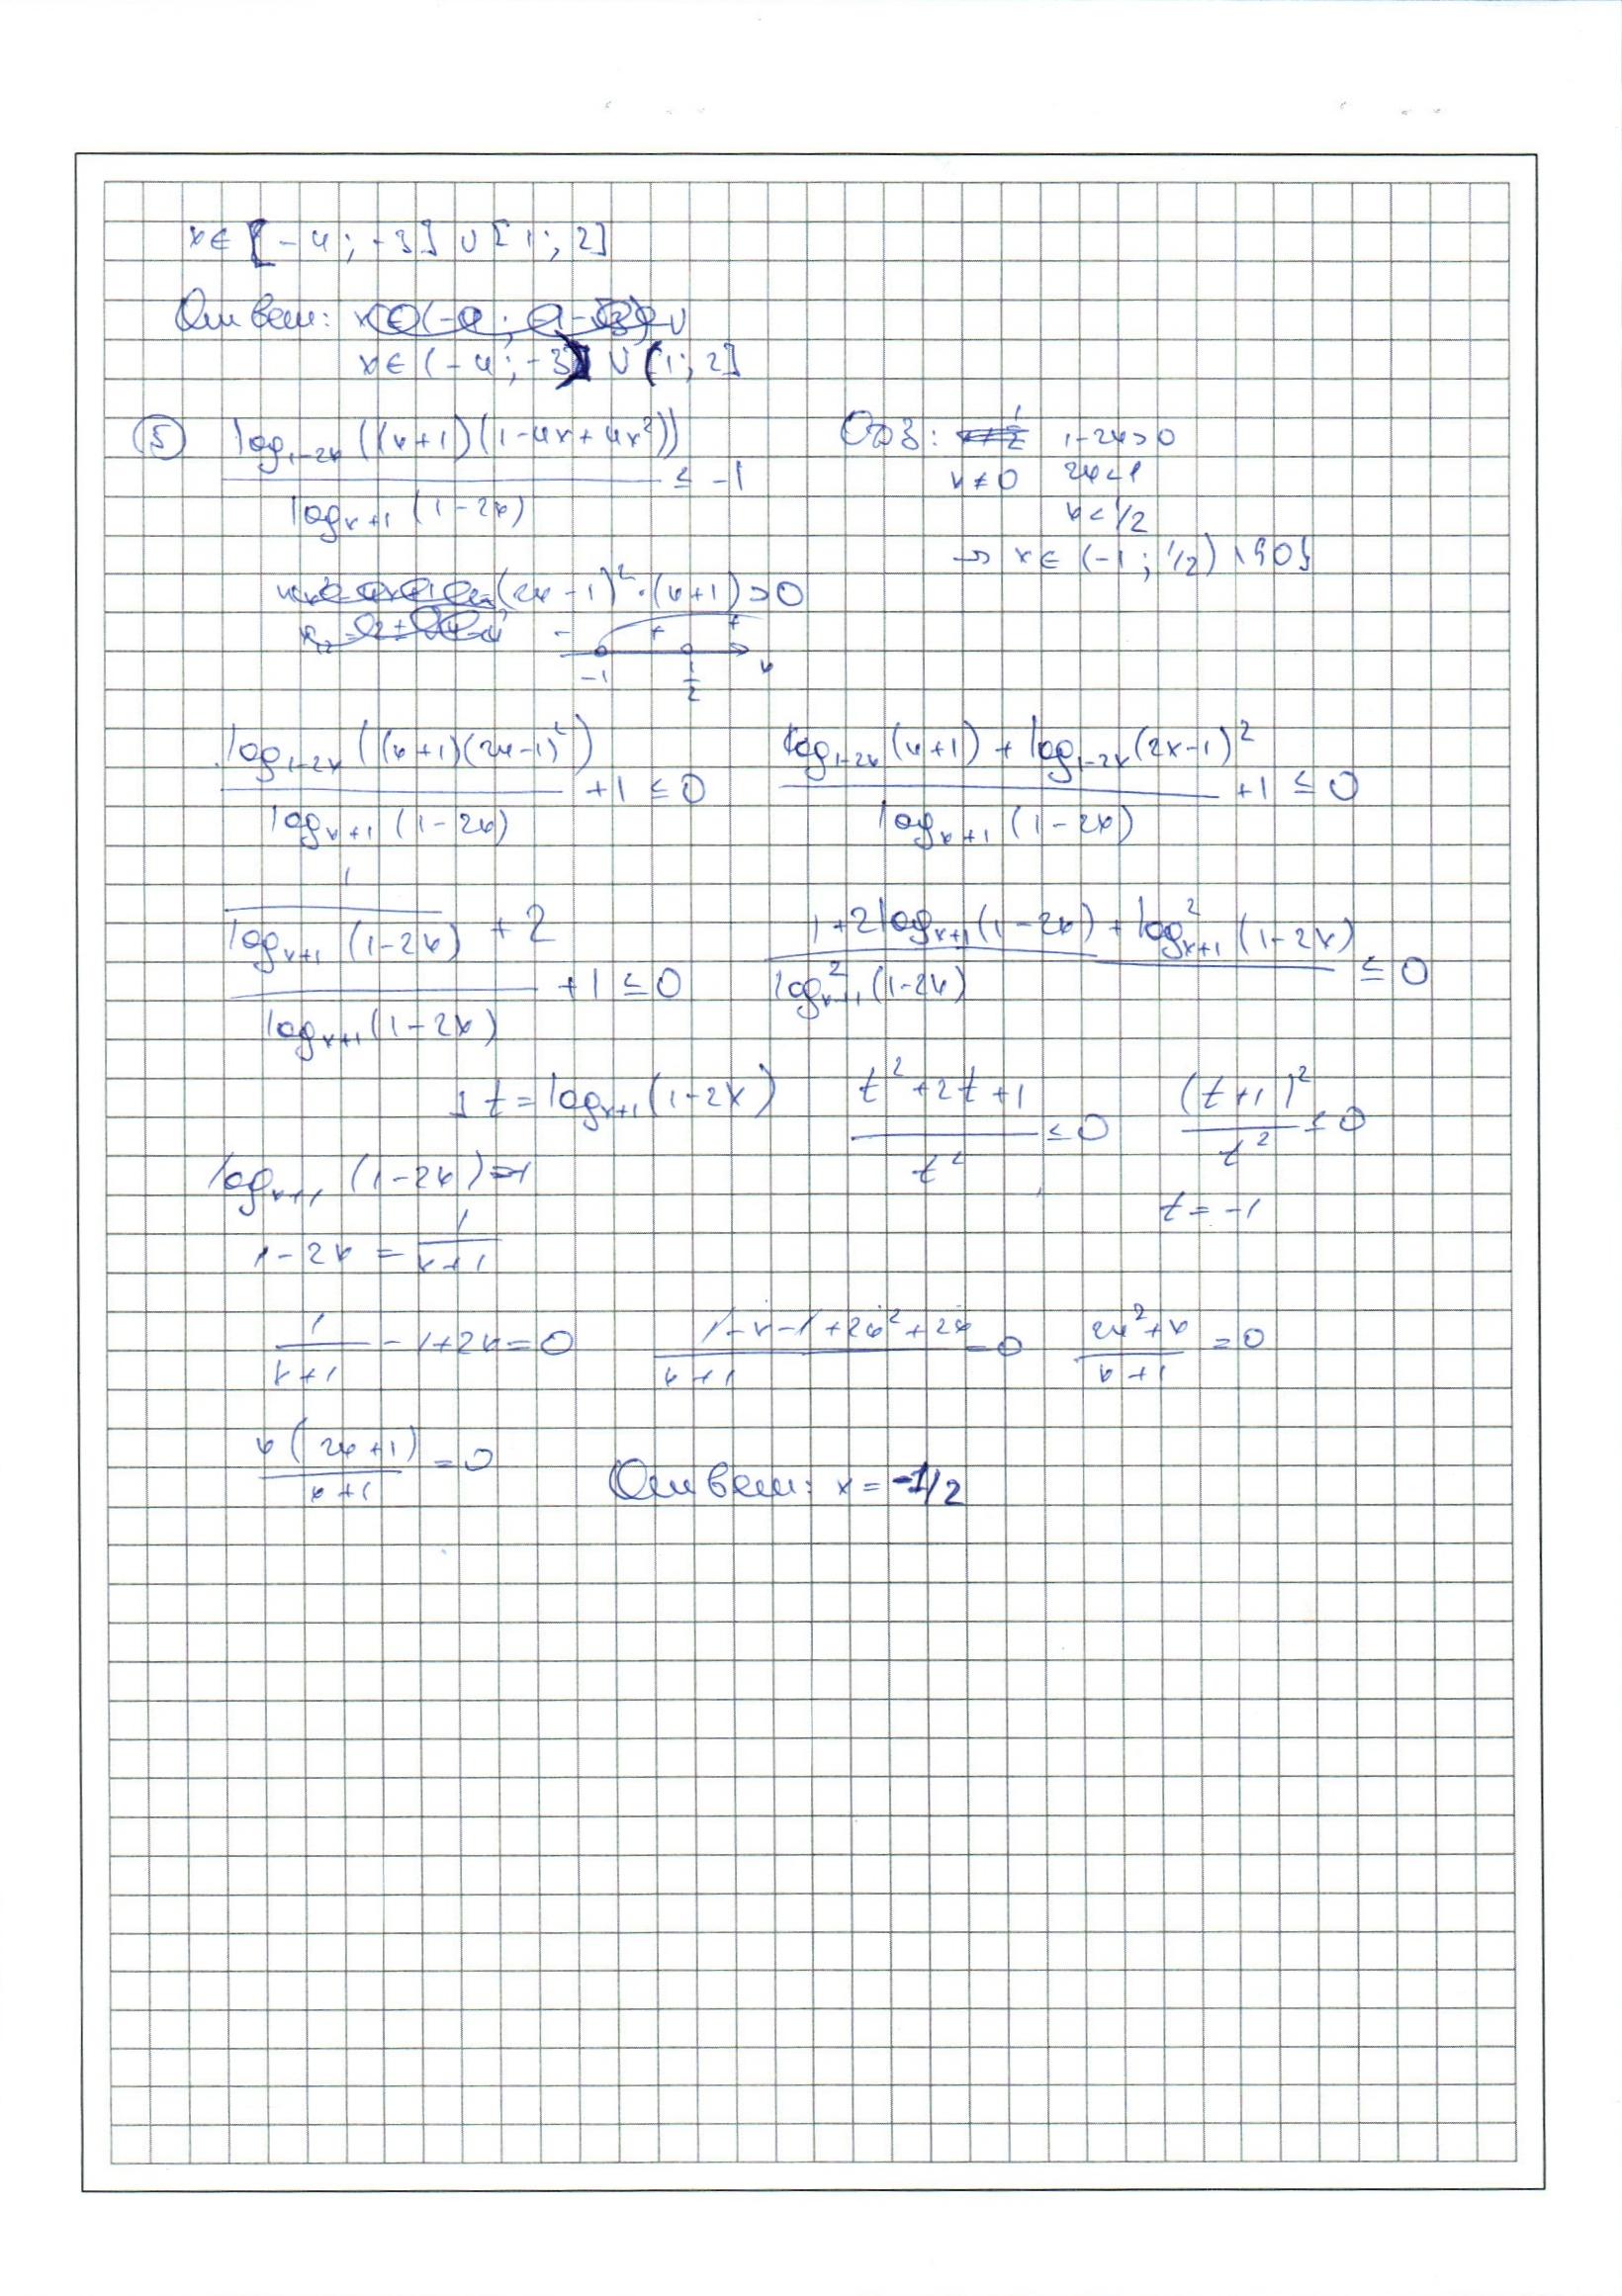 x ∈ [-4; -3] ∪ [1; 2]
Ответ:
x ∈ (-4; -3) ∪ (1; 2]
⑤ log₁₋₂ₓ((x+1)(1-4x+4x²)) / logₓ₊₁(1-2x) ≤ -1
ОДЗ: 1-2x>0
x≠0 2x<1
x<1/2
→ x ∈ (-1; 1/2) \ {0}
(2x-1)²·(x+1)>0
- + +
-1 1/2 x
log₁₋₂ₓ((x+1)(2x-1)²) / logₓ₊₁(1-2x) +1 ≤ 0 (log₁₋₂ₓ(x+1) + log₁₋₂ₓ(2x-1)²) / logₓ₊₁(1-2x) +1 ≤ 0
(1 / logₓ₊₁(1-2x) + 2) / logₓ₊₁(1-2x) +1 ≤ 0 (1+2logₓ₊₁(1-2x) + log²ₓ₊₁(1-2x)) / log²ₓ₊₁(1-2x) ≤ 0
t = logₓ₊₁(1-2x) (t²+2t+1) / t² ≤ 0 (t+1)² / t² ≤ 0
logₓ₊₁(1-2x)=-1 t = -1
1-2x = 1/(x+1)
1/(x+1) - 1+2x=0 (1-x-1+2x²+2x)/(x+1) = 0 (2x²+x)/(x+1) = 0
x(2x+1)/(x+1) = 0 Ответ: x = -1/2